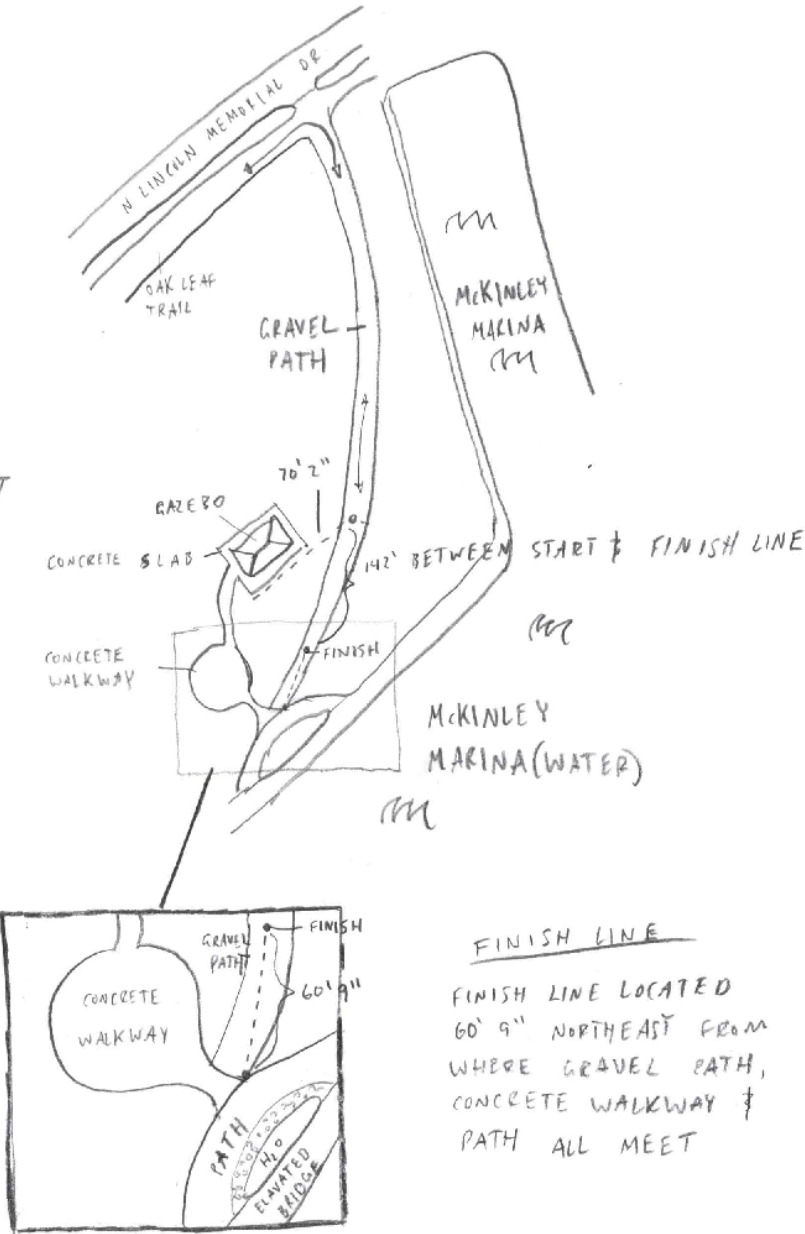 N LINCOLN MEMORIAL DR
OAK LEAF
TRAIL
GRAVEL
PATH
McKINLEY
MARINA
70' 2"
GAZEBO
CONCRETE SLAB
142' BETWEEN START & FINISH LINE
T
CONCRETE
WALKWAY
FINISH
McKINLEY
MARINA (WATER)
FINISH
GRAVEL
PATH
60' 9"
CONCRETE
WALKWAY
PATH
H2O
ELAVATED
BRIDGE
FINISH LINE
FINISH LINE LOCATED
60' 9" NORTHEAST FROM
WHERE GRAVEL PATH,
CONCRETE WALKWAY &
PATH ALL MEET